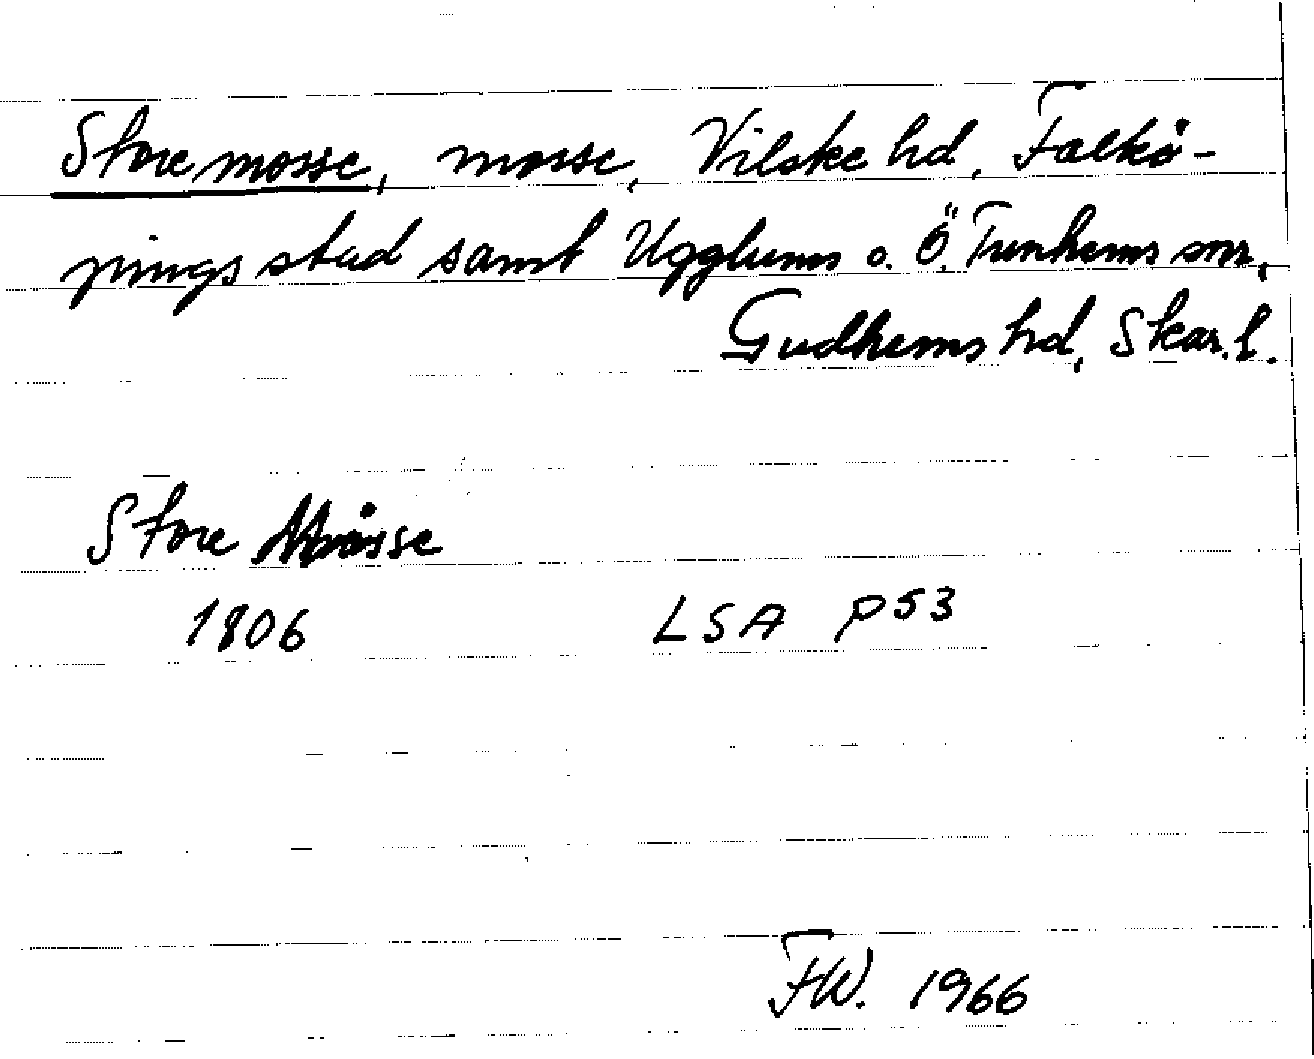 Store mosse, mosse, Vilske hd, Falkö-
pings stad samt Ugglums o. Ö. Tunhems snr,
Gudhems hd, Skar. l.
Store Måsse
1806 LSA P53
FW. 1966